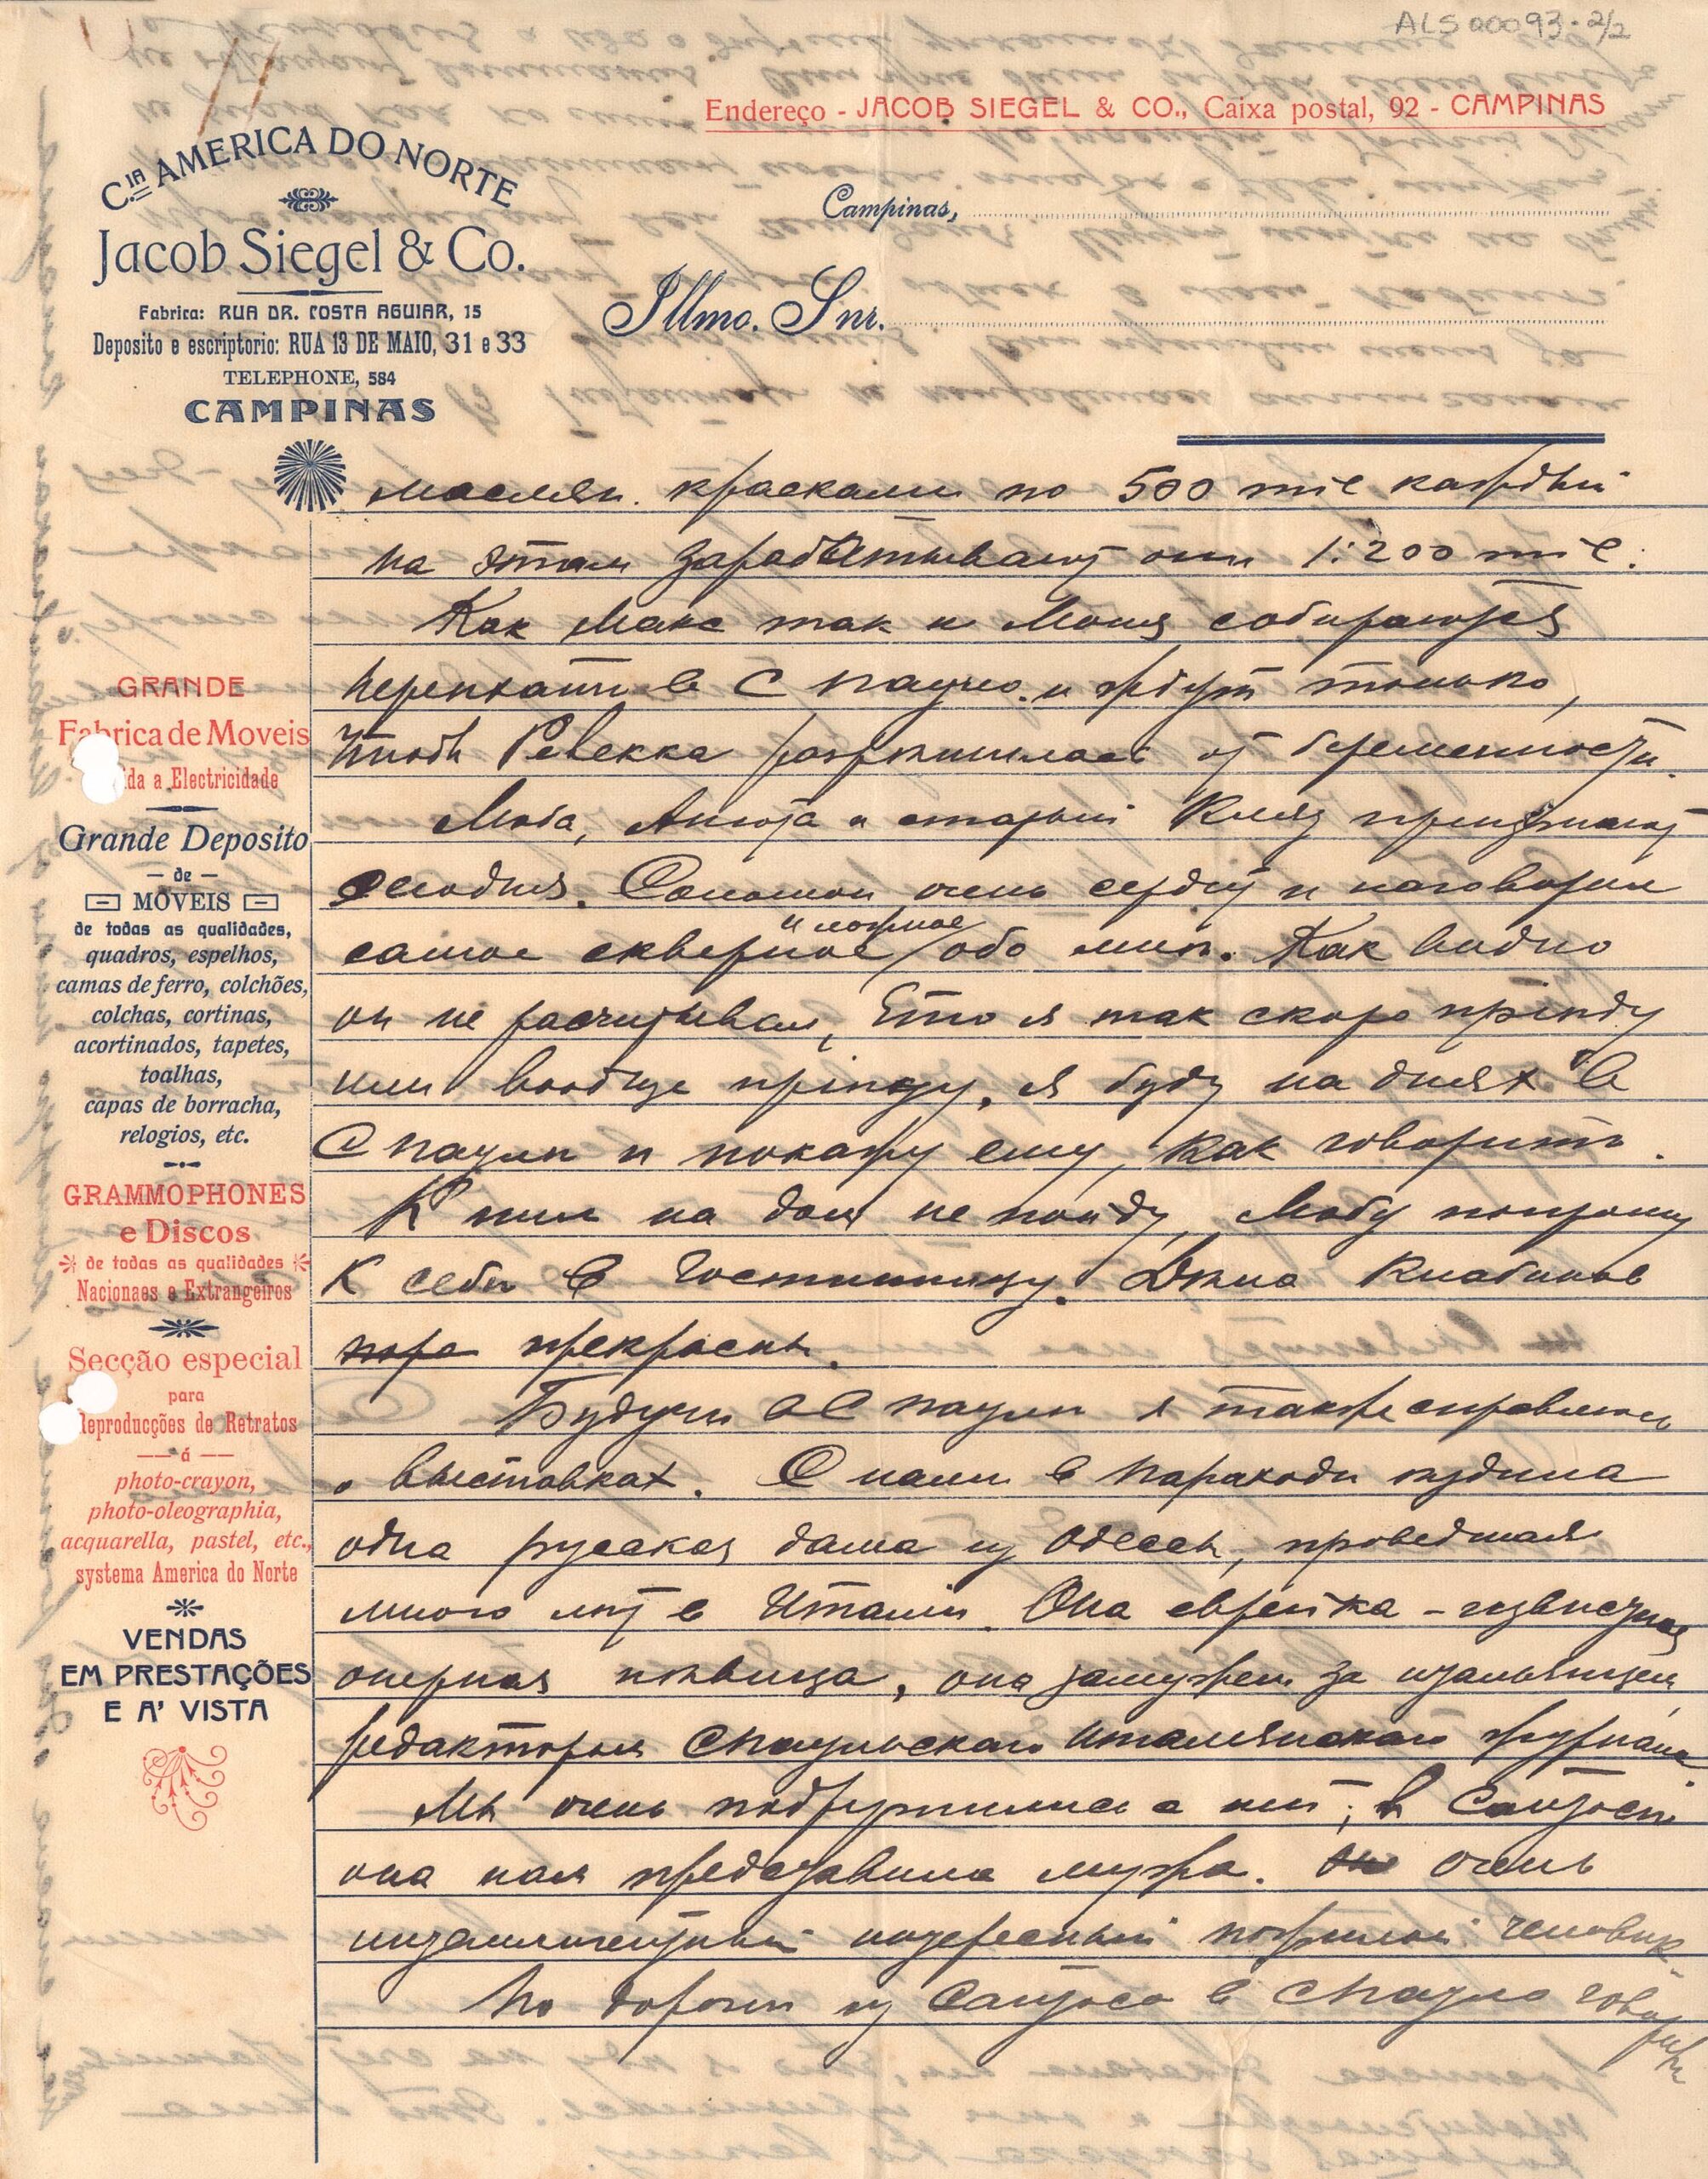 ALS 00093-2/2
Endereço - JACOB SIEGEL & CO., Caixa postal, 92 - CAMPINAS
CIA AMERICA DO NORTE
Jacob Siegel & Co.
Fabrica: RUA DR. COSTA AGUIAR, 15
Deposito e escriptorio: RUA 13 DE MAIO, 31 e 33
TELEPHONE, 584
CAMPINAS
Campinas,
Illmo. Snr.
GRANDE
Fabrica de Moveis
da a Electricidade
Grande Deposito
— de —
MOVEIS
de todas as qualidades,
quadros, espelhos,
camas de ferro, colchões,
colchas, cortinas,
acortinados, tapetes,
toalhas,
capas de borracha,
relogios, etc.
GRAMMOPHONES
e Discos
de todas as qualidades
Nacionaes e Extrangeiros
Secção especial
para
Reproducções de Retratos
— á —
photo-crayon,
photo-oleographia,
acquarella, pastel, etc.,
systema America do Norte
VENDAS
EM PRESTAÇÕES
E A' VISTA
маслян. красками по 500 mil каждый
на этом зарабатывают они 1:200 mil.
Как Макс так и Моня собираются
переѣхать в С Пауло и ждут только,
чтоб Ревекка разрѣшилась от беременности.
Люба, Анюта и старый приѣзжают
сегодня. Соломон очень сердит и наговорил
самое скверное и ложное обо мнѣ. Как видно
он не расчитывал, что я так скоро пріѣду
или вообще пріѣду. Я буду на днях в
С Пауло и покажу ему, как говорить.
К ним на дом не пойду, Любу попрошу
к себѣ в гостинницу. Дѣла Клабинов
прекрасны.
Будучи в С Пауло я также справлюсь
о выставках. С нами в пароходѣ ѣздила
одна русская дама из Одессы, проведшая
много лѣт в Италіи. Она еврейка - извѣстная
оперная пѣвица, она замужем за итальянцем
редактором С Паульскаго Итальянскаго журнала.
Мы очень подружились с ней; в Сантосѣ
она нам представила мужа. очень
интеллигентный интересный пожилой человѣк.
По дорогѣ из Сантоса в С Пауло говорили